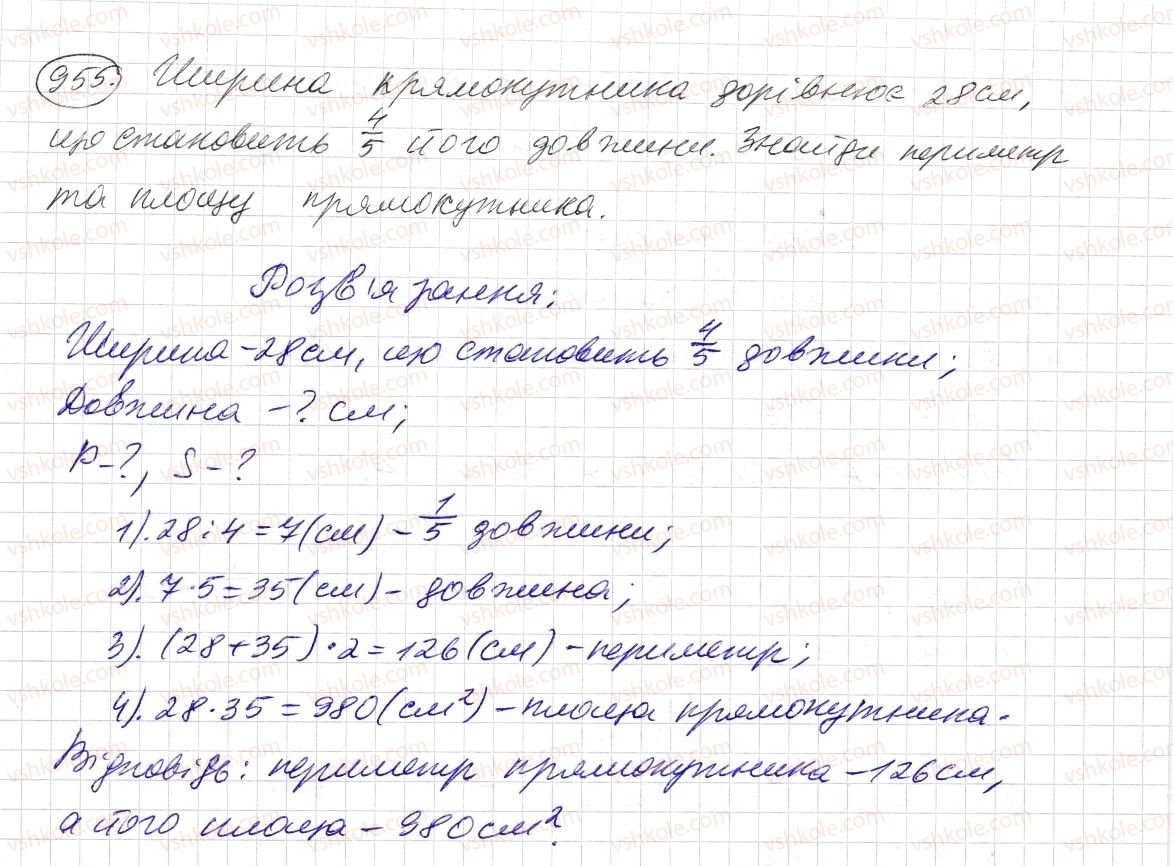 955. Ширина прямокутника дорівнює 28 см,
що становить 4/5 його довжини. Знайди периметр
та площу прямокутника.
Розв'язання:
Ширина - 28 см, що становить 4/5 довжини;
Довжина - ? см;
P - ?, S - ?
1). 28 : 4 = 7 (см) - 1/5 довжини;
2). 7 · 5 = 35 (см) - довжина;
3). (28 + 35) · 2 = 126 (см) - периметр;
4). 28 · 35 = 980 (см²) - площа прямокутника.
Відповідь: периметр прямокутника - 126 см,
а його площа - 980 см².